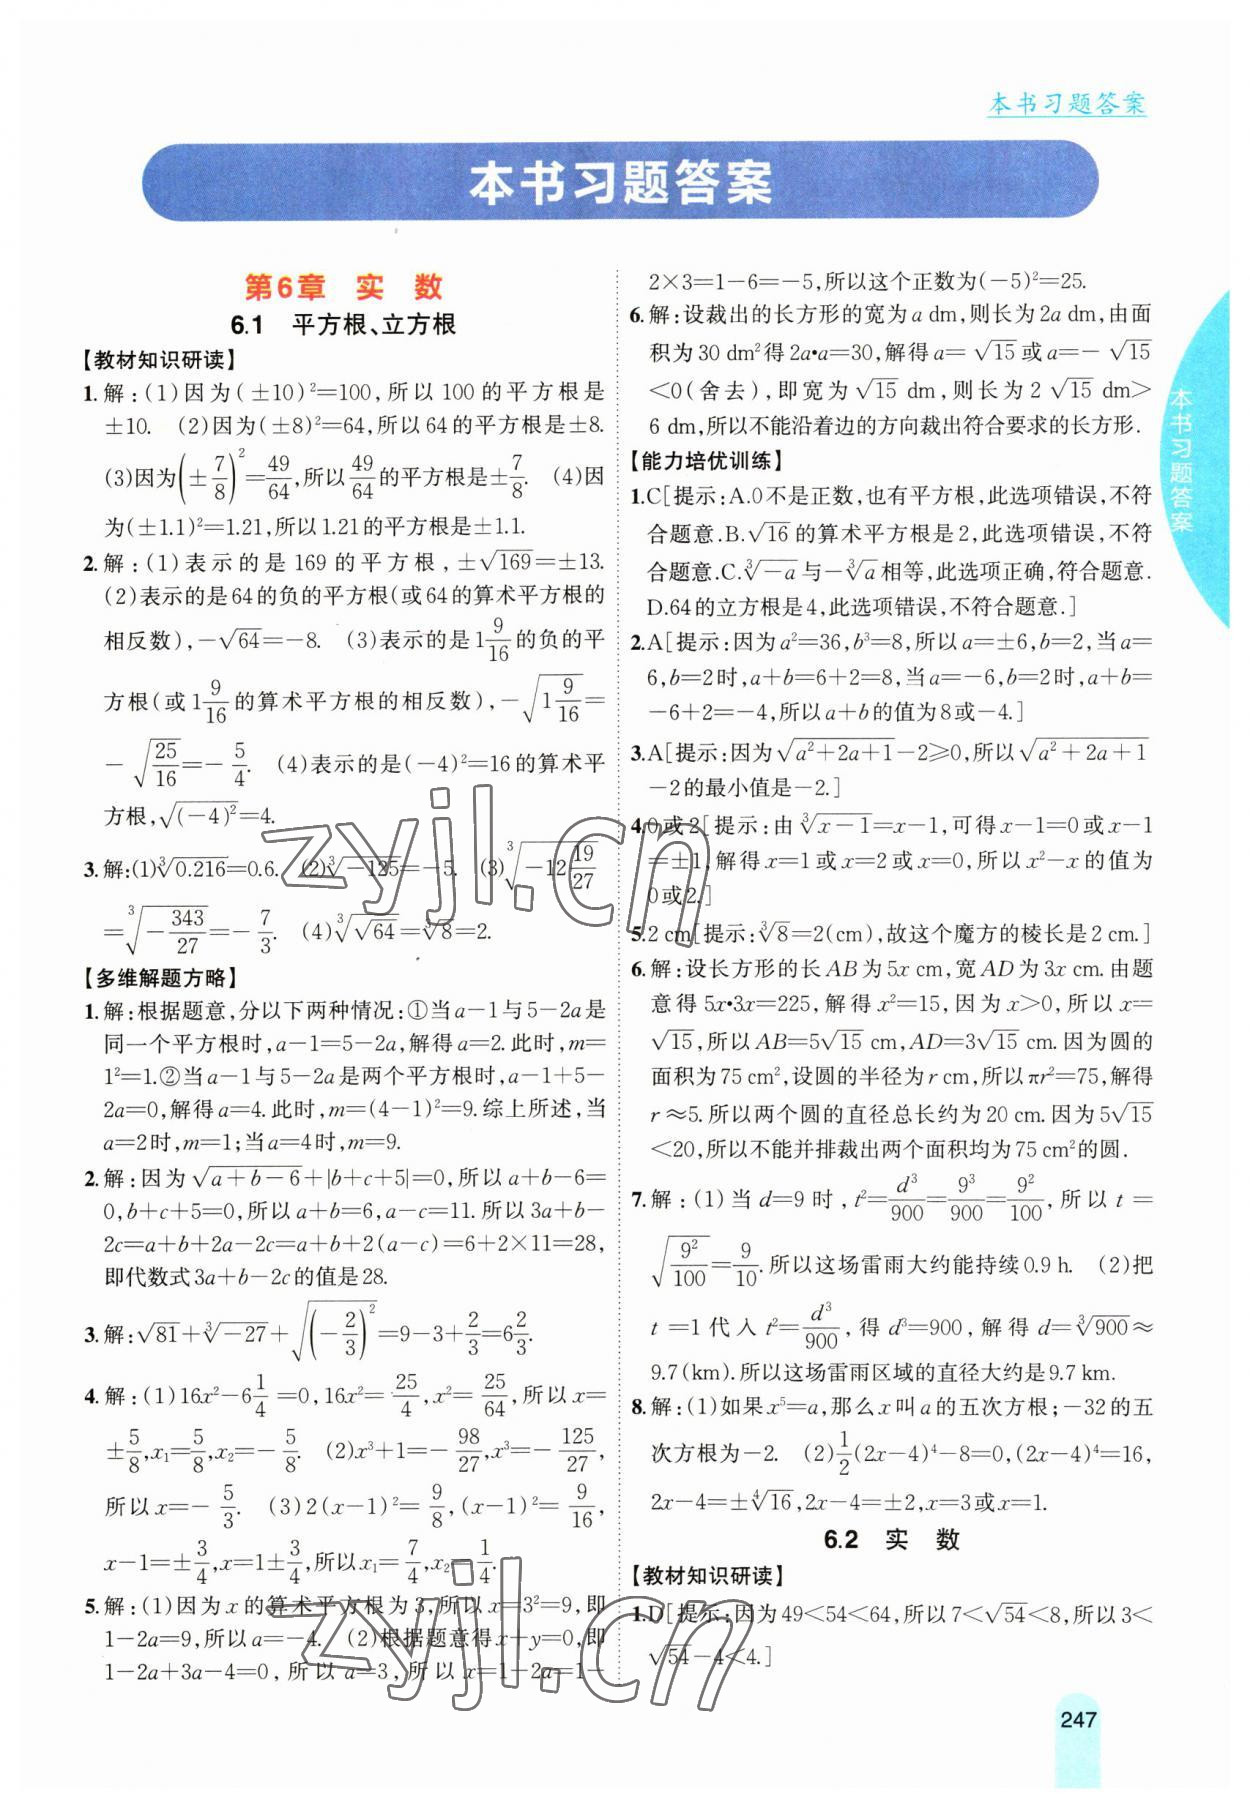 本书习题答案
本书习题答案
第6章 实 数
6.1 平方根、立方根
【教材知识研读】
1.解:(1)因为(±10)²=100,所以100的平方根是
±10. (2)因为(±8)²=64,所以64的平方根是±8.
(3)因为(±7/8)²=49/64,所以49/64的平方根是±7/8. (4)因
为(±1.1)²=1.21,所以1.21的平方根是±1.1.
2.解:(1)表示的是169的平方根,±√169=±13.
(2)表示的是64的负的平方根(或64的算术平方根的
相反数),-√64=-8. (3)表示的是1 9/16的负的平
方根(或1 9/16的算术平方根的相反数),-√(1 9/16)=
-√(25/16)=-5/4. (4)表示的是(-4)²=16的算术平
方根,√(-4)²=4.
3.解:(1)∛0.216=0.6. (2)∛-125=-5. (3)∛(-12 19/27)
=∛(-343/27)=-7/3. (4)∛√64=∛8=2.
【多维解题方略】
1.解:根据题意,分以下两种情况:①当a-1与5-2a是
同一个平方根时,a-1=5-2a,解得a=2.此时,m=
1²=1.②当a-1与5-2a是两个平方根时,a-1+5-
2a=0,解得a=4.此时,m=(4-1)²=9.综上所述,当
a=2时,m=1;当a=4时,m=9.
2.解:因为√(a+b-6)+|b+c+5|=0,所以a+b-6=
0,b+c+5=0,所以a+b=6,a-c=11.所以3a+b-
2c=a+b+2a-2c=a+b+2(a-c)=6+2×11=28,
即代数式3a+b-2c的值是28.
3.解:√81+∛-27+√(-2/3)²=9-3+2/3=6 2/3.
4.解:(1)16x²-6 1/4=0,16x²=25/4,x²=25/64,所以x=
±5/8,x₁=5/8,x₂=-5/8. (2)x³+1=-98/27,x³=-125/27,
所以x=-5/3. (3)2(x-1)²=9/8,(x-1)²=9/16,
x-1=±3/4,x=1±3/4,所以x₁=7/4,x₂=1/4.
5.解:(1)因为x的算术平方根为3,所以x=3²=9,即
1-2a=9,所以a=-4. (2)根据题意得x+y=0,即
1-2a+3a-4=0,所以a=3,所以x=1-2a=1-
2×3=1-6=-5,所以这个正数为(-5)²=25.
6.解:设裁出的长方形的宽为a dm,则长为2a dm,由面
积为30 dm²得2a•a=30,解得a=√15或a=-√15
<0(舍去),即宽为√15 dm,则长为2√15 dm>
6 dm,所以不能沿着边的方向裁出符合要求的长方形.
【能力培优训练】
1.C[提示:A.0不是正数,也有平方根,此选项错误,不符
合题意.B.√16的算术平方根是2,此选项错误,不符
合题意.C.∛-a与-∛a相等,此选项正确,符合题意.
D.64的立方根是4,此选项错误,不符合题意.]
2.A[提示:因为a²=36,b³=8,所以a=±6,b=2,当a=
6,b=2时,a+b=6+2=8,当a=-6,b=2时,a+b=
-6+2=-4,所以a+b的值为8或-4.]
3.A[提示:因为√(a²+2a+1)-2≥0,所以√(a²+2a+1)
-2的最小值是-2.]
4.0或2[提示:由∛(x-1)=x-1,可得x-1=0或x-1
=±1,解得x=1或x=2或x=0,所以x²-x的值为
0或2.]
5.2 cm[提示:∛8=2(cm),故这个魔方的棱长是2 cm.]
6.解:设长方形的长AB为5x cm,宽AD为3x cm.由题
意得5x•3x=225,解得x²=15,因为x>0,所以x=
√15,所以AB=5√15 cm,AD=3√15 cm.因为圆的
面积为75 cm²,设圆的半径为r cm,所以πr²=75,解得
r≈5.所以两个圆的直径总长约为20 cm.因为5√15
<20,所以不能并排裁出两个面积均为75 cm²的圆.
7.解:(1)当d=9时,t²=d³/900=9³/900=9²/100,所以t=
√(9²/100)=9/10.所以这场雷雨大约能持续0.9 h. (2)把
t=1代入t²=d³/900,得d³=900,解得d=∛900≈
9.7(km).所以这场雷雨区域的直径大约是9.7 km.
8.解:(1)如果x⁵=a,那么x叫a的五次方根;-32的五
次方根为-2. (2)1/2(2x-4)⁴-8=0,(2x-4)⁴=16,
2x-4=±∜16,2x-4=±2,x=3或x=1.
6.2 实 数
【教材知识研读】
1.D[提示:因为49<54<64,所以7<√54<8,所以3<
√54-4<4.]
本书习题答案
247
zyjl.cn
zyjl.cn